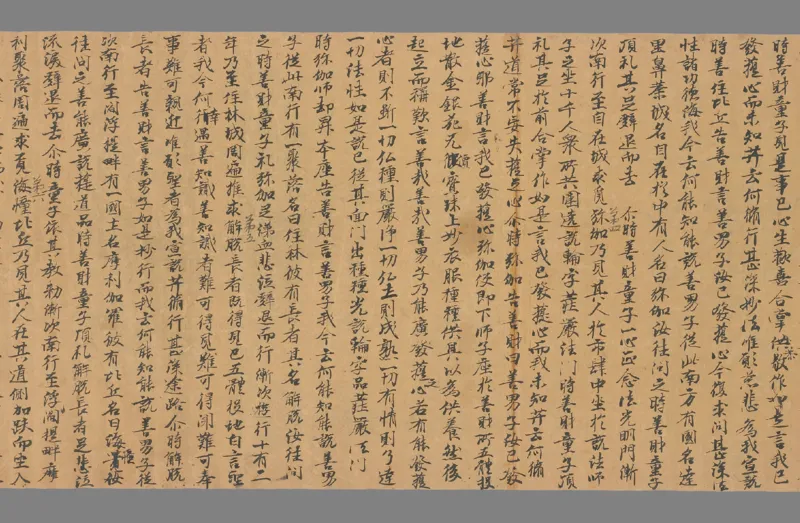 時善財童子見是事已心生歡喜合掌供敬作如是言我已
發菩提心而未知𦬇云何修行甚深妙法唯願慈悲為我宣說
時善住比丘告善財言善男子汝已發菩提心今復來問甚深法
性諸功德海我今云何能知能說善男子從此南方有國名達
里鼻荼城名自在於中有人名曰弥伽汝往問之時善財童子
頂礼其足辞退而去 第四 尒時善財童子一心正念法光明門漸
次南行至自在城求覓弥伽乃見其人於市肆中坐於說法師
子之坐十千人衆所共圍遶說輪字莊嚴法門時善財童子頂
礼其足於前合掌作如是言我已發菩提心而我未知𦬇云何修
𦬇道常不妄失菩提之心尒時弥伽告善財曰善男子汝已發
菩提心耶善財言我已發菩提心弥伽便即下師子座於善財所五體投
地散金銀花无價寶珠上妙衣服種種供具以為供養然後
起立而稱歎言善哉善哉善男子乃能廣發菩提之心若有能發菩提
心者則不斷一切仏種則嚴淨一切仏土則成熟一切有情則乃達
一切法性如是說已從其面門出種種光說輪字品莊嚴法門
時弥伽師却昇本座告善財言善男子我今云何能知能說善男
子從此南行有一聚落名曰住林彼有長者其名解脫汝往問
之時善財童子礼弥伽足涕血悲泣辞退而行漸次遊行十有二
年乃至住林城周遍推求解脫長者既得見已五體投地白言聖 第五
者我今何幸遇善知識善知識者難可得見難可得聞難可奉
事難可親近唯願聖者為我宣說𦬇修行甚深逕路尒時解脫
長者告善財言善男子如是妙行而我云何能知能說善男子從
次南行至閻浮提畔有一國土名摩利伽羅彼有比丘名曰海幢汝
往問之善能廣說菩提道品時善財童子頂礼解脫長者足悲泣
流淚辞退而去尒時童子依其教勅漸次南行至閻浮提畔摩
利聚落周遍求覓海幢比丘乃見其人在其道側加趺而坐入 第六